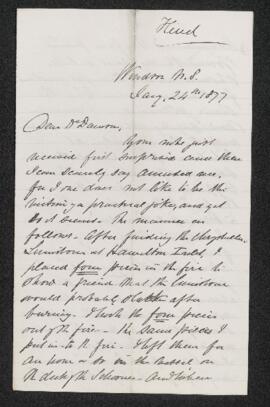 Hind
Windsor N.S.
Jany. 24th 1877
Dear Dr Dawson,
Your note just
received first surprised and then
I can scarcely say amused me,
for I one does not like to be the
victim of a practical joke, and yet
so it seems. The manner as
follows. After finding the
Limestone at Hamilton Inlet, I
placed four pieces in the fire to
show a friend that the limestone
would probably after
burning. I took the four pieces
out of the fire. The same pieces I
put in to the fire. I left them for
an hour or so in the on
the deck of the Schooner. And when